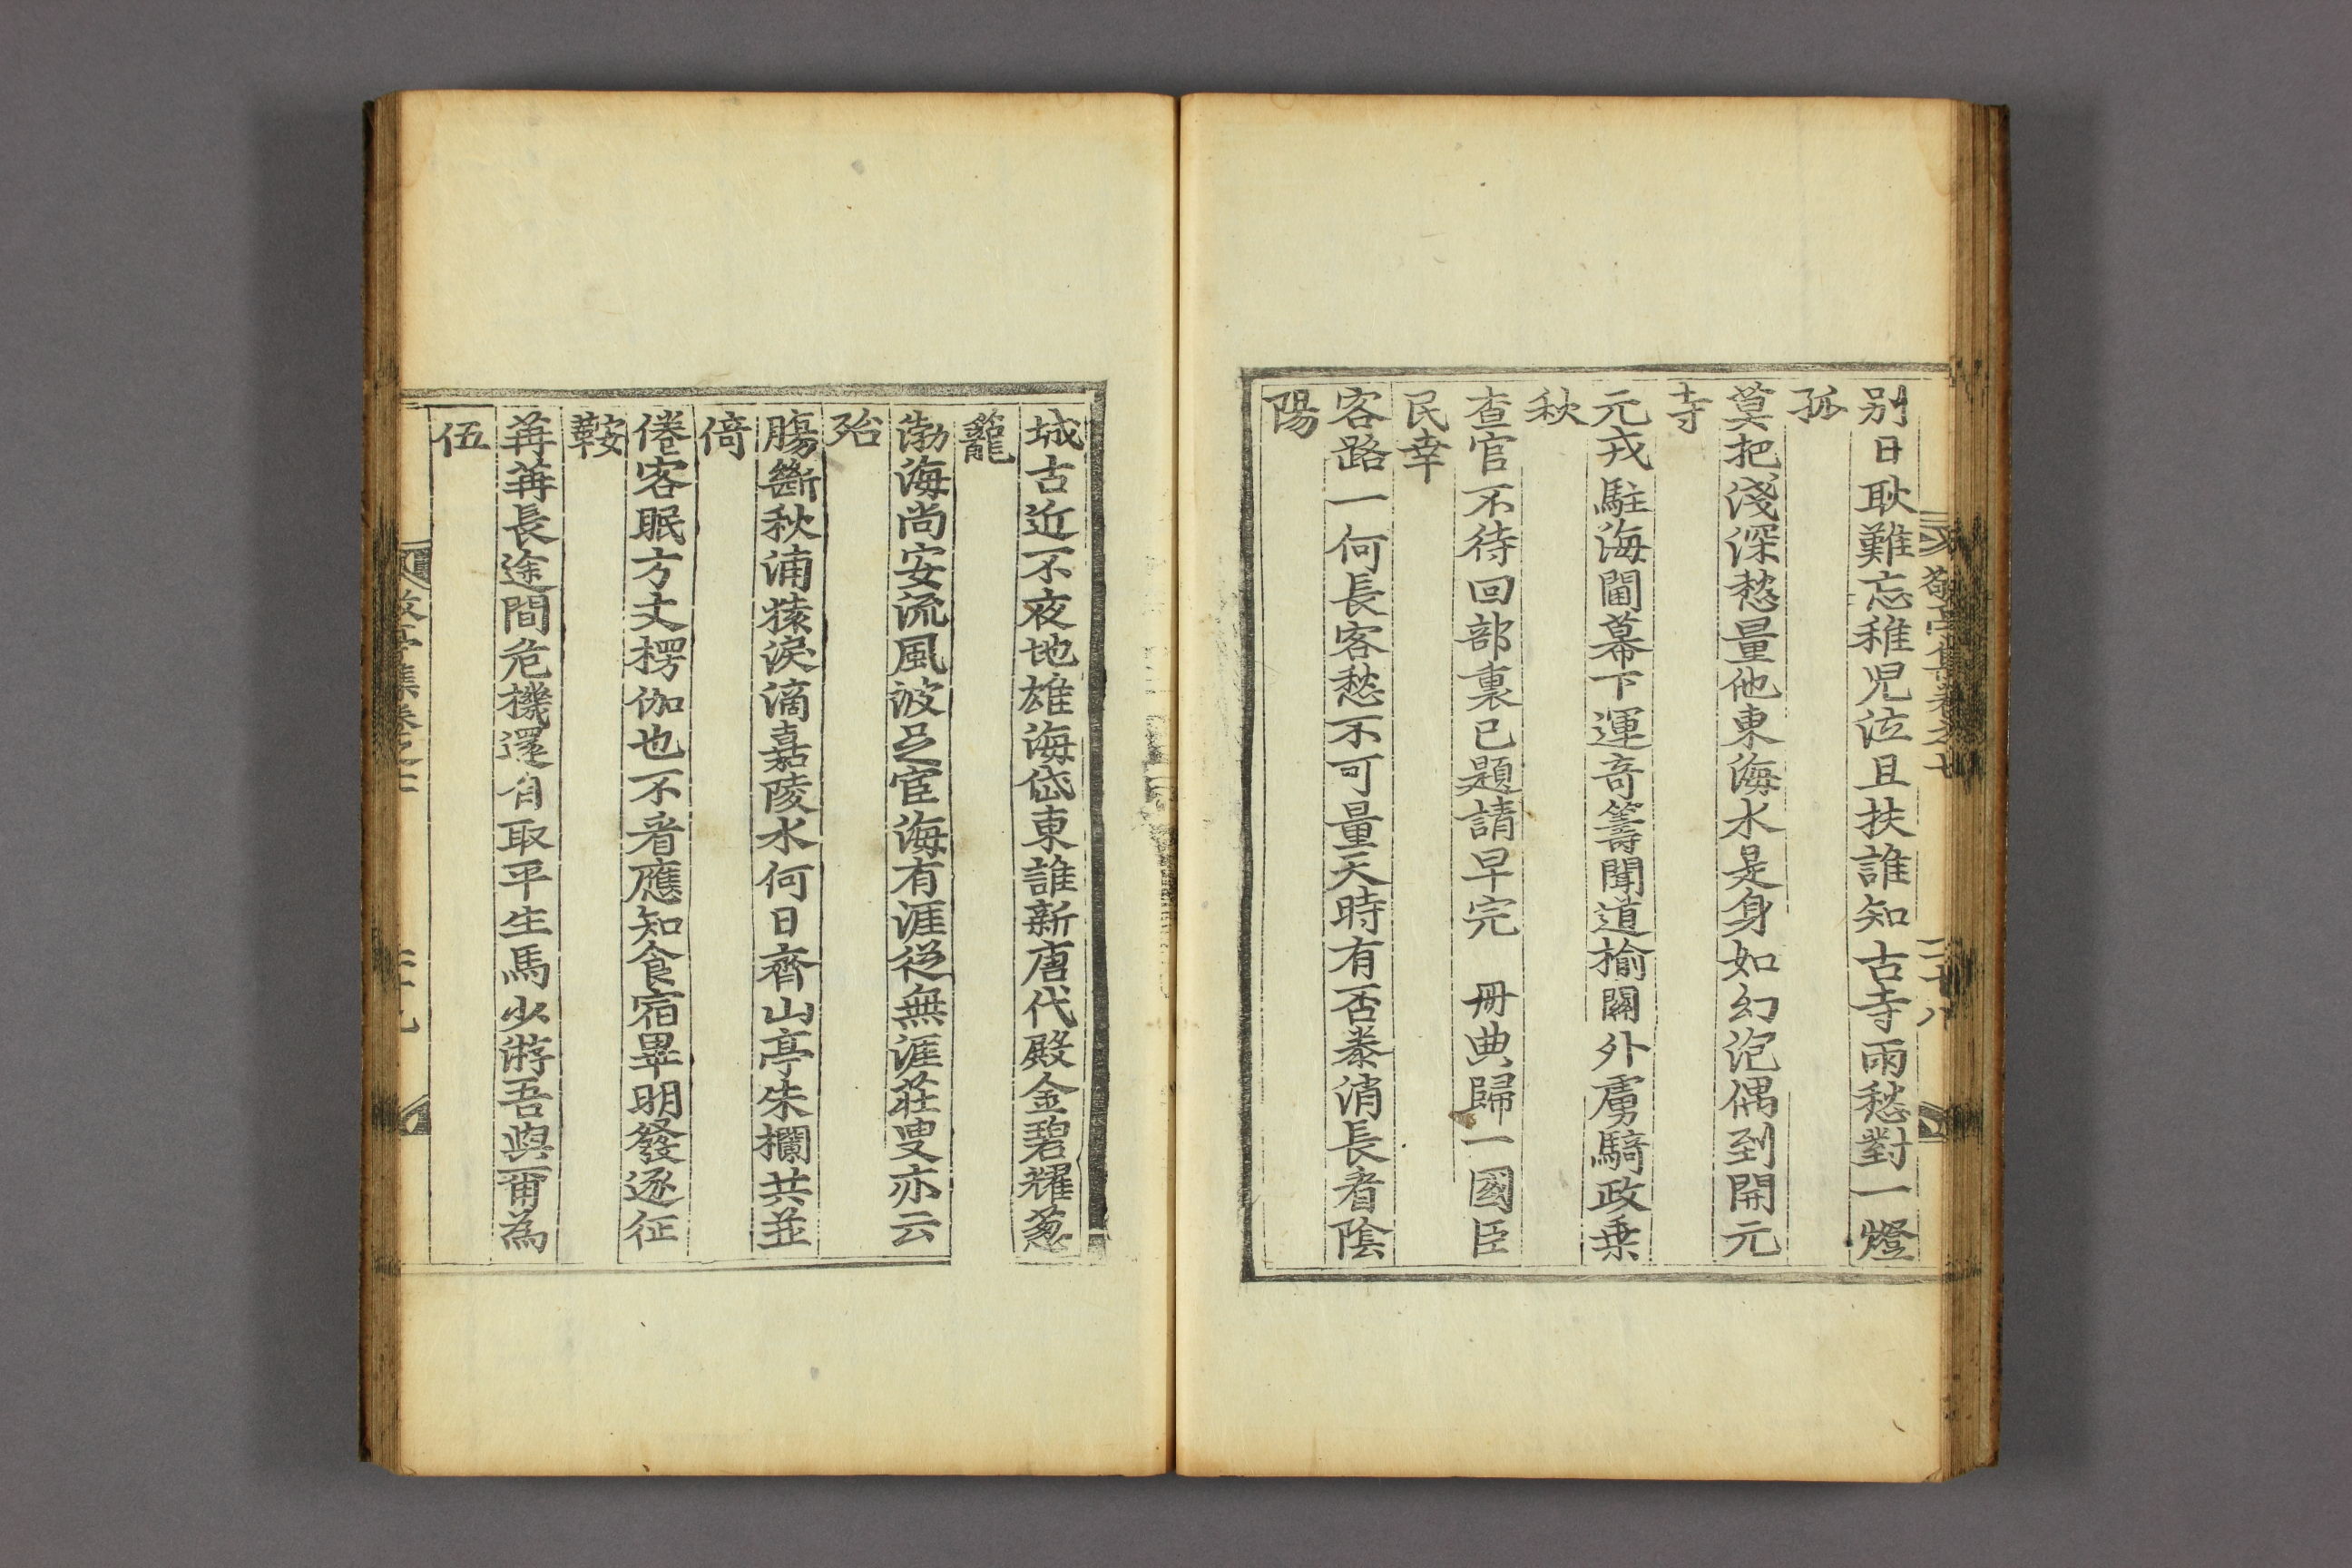 別日耿難忘稚児泣且扶誰知古寺雨愁對一燈
孤
莫把淺深愁量他東海水是身如幻泡偶到開元
寺
元戎駐海閫幕下運奇籌聞道榆關外虜騎政乗
秋
查官不待回部裏已題請早完　冊典歸一國臣
民幸
客路一何長客愁不可量天時有否泰消長看陰
陽
城古近不夜地雄海岱東誰新唐代殿金碧耀葱
籠
渤海尚安流風波足宦海有涯從無涯莊叟亦云
殆
腸斷秋浦猿淚滴嘉陵水何日齊山亭朱欄共並
倚
倦客眠方丈楞伽也不看應知食宿畢明發逐征
鞍
苒苒長途間危機還自取平生馬少游吾與爾為
伍
敬亭集卷之七
二十八